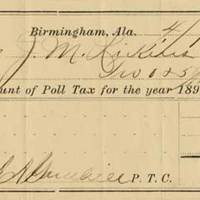 Birmingham, Ala. 4/1
J. M. Ricketts
Two & 50
unt of Poll Tax for the year 189
P. T. C.